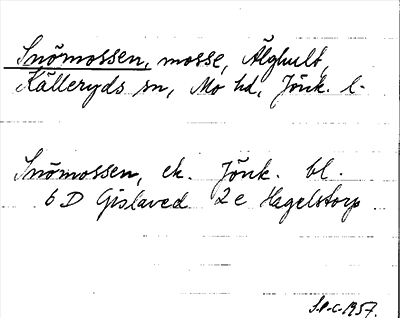 Snömossen, mosse, Älghult,
Källeryds sn, Mo hd, Jönk. l.
Snömossen, ek. Jönk. bl.
6 D Gislaved 2 e Hagelstorp.
S.P.C. 1957.